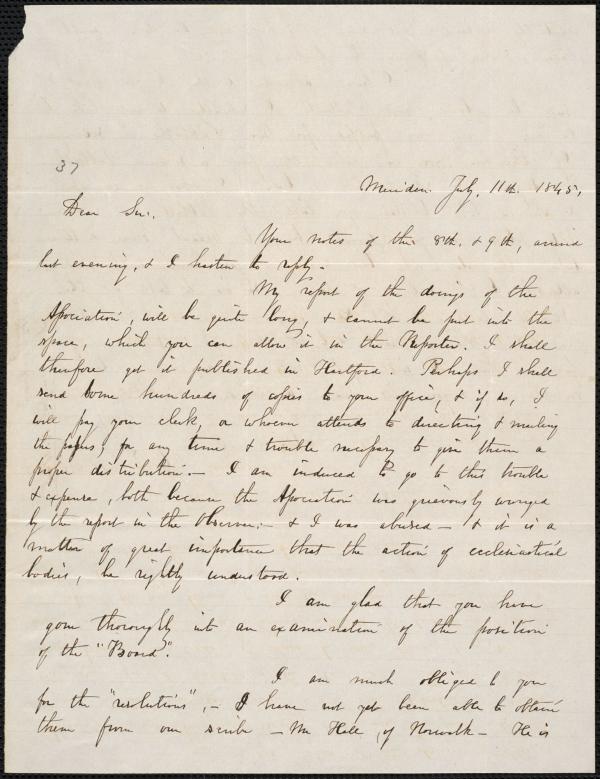 37
Meriden. July, 11th. 1845,
Dear Sir.
Your notes of the 8th. & 9th, arrived
last evening, & I hasten to reply.
My report of the doings of the
Association, will be quite long, & cannot be put into the
space, which you can allow it in the Reporter. I shall
therefore get it published in Hartford. Perhaps I shall
send some hundreds of copies to your office, & if so, I
will pay your clerk, or whoever attends to directing & mailing
the papers, for any time & trouble necessary to give them a
proper distribution. — I am induced to go to this trouble
& expense, both because the Association was grievously wronged
by the report in the Observer; - & I was abused — & it is a
matter of great importance that the action of ecclesiastical
bodies, be rightly understood.
I am glad that you have
gone thoroughly into an examination of the position
of the "Board".
I am much obliged to you
for the "resolutions", - I have not yet been able to obtain
them from our scribe — Mr Hall, of Norwalk — He is